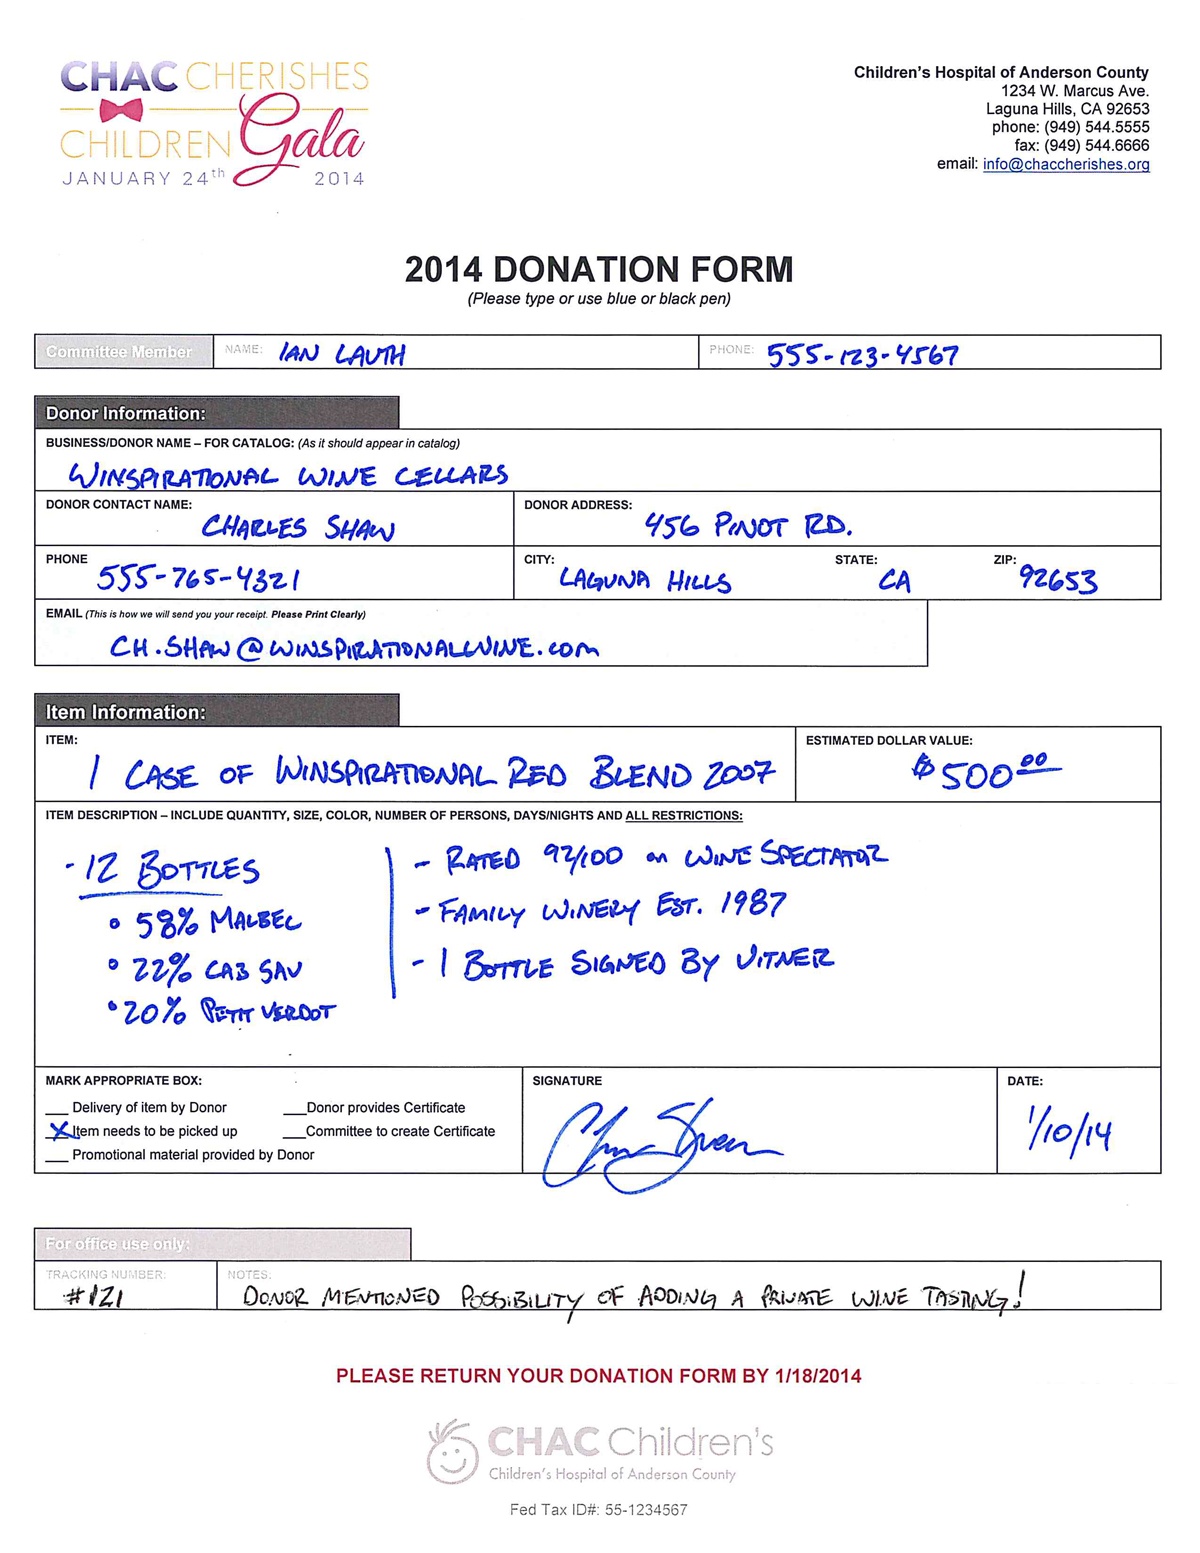 CHAC CHERISHES
CHILDREN Gala
JANUARY 24th 2014
Children's Hospital of Anderson County
1234 W. Marcus Ave.
Laguna Hills, CA 92653
phone: (949) 544.5555
fax: (949) 544.6666
email: info@chaccherishes.org
2014 DONATION FORM
(Please type or use blue or black pen)
Committee Member NAME: IAN LAUTH PHONE: 555-123-4567
Donor Information:
BUSINESS/DONOR NAME – FOR CATALOG: (As it should appear in catalog)
WINSPIRATIONAL WINE CELLARS
DONOR CONTACT NAME: DONOR ADDRESS:
CHARLES SHAW 456 PINOT RD.
PHONE CITY: STATE: ZIP:
555-765-4321 LAGUNA HILLS CA 92653
EMAIL (This is how we will send you your receipt. Please Print Clearly)
CH.SHAW@WINSPIRATIONALWINE.COM
Item Information:
ITEM: ESTIMATED DOLLAR VALUE:
1 CASE OF WINSPIRATIONAL RED BLEND 2007 $500.00
ITEM DESCRIPTION – INCLUDE QUANTITY, SIZE, COLOR, NUMBER OF PERSONS, DAYS/NIGHTS AND ALL RESTRICTIONS:
- 12 BOTTLES
• 58% MALBEC
• 22% CAB SAV
• 20% PETIT VERDOT
- RATED 92/100 on WINE SPECTATOR
- FAMILY WINERY EST. 1987
- 1 BOTTLE SIGNED BY VITNER
MARK APPROPRIATE BOX:
___ Delivery of item by Donor ___Donor provides Certificate
X Item needs to be picked up ___Committee to create Certificate
___ Promotional material provided by Donor
SIGNATURE
DATE:
1/10/14
For office use only:
TRACKING NUMBER: NOTES:
#121 DONOR MENTIONED POSSIBILITY OF ADDING A PRIVATE WINE TASTING!
PLEASE RETURN YOUR DONATION FORM BY 1/18/2014
CHAC Children's
Children's Hospital of Anderson County
Fed Tax ID#: 55-1234567